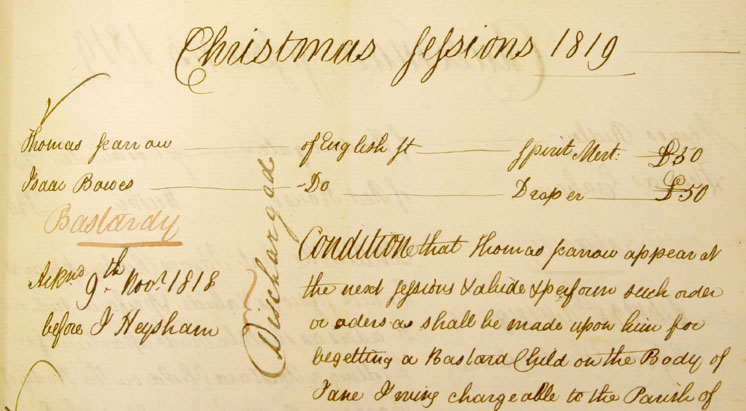 Christmas Sessions 1819
Thomas Jearrow of English St Spirit Mert: £50
Isaac Bowes -Do Draper £50
Bastardy
Acknd 9th Novr 1818
before J Heysham
Discharged
Condition that Thomas Jearrow appear at
the next Sessions & abide & perform such order
or oders as shall be made upon him for
begetting a Bastard Child on the Body of
Jane Irving chargeable to the Parish of